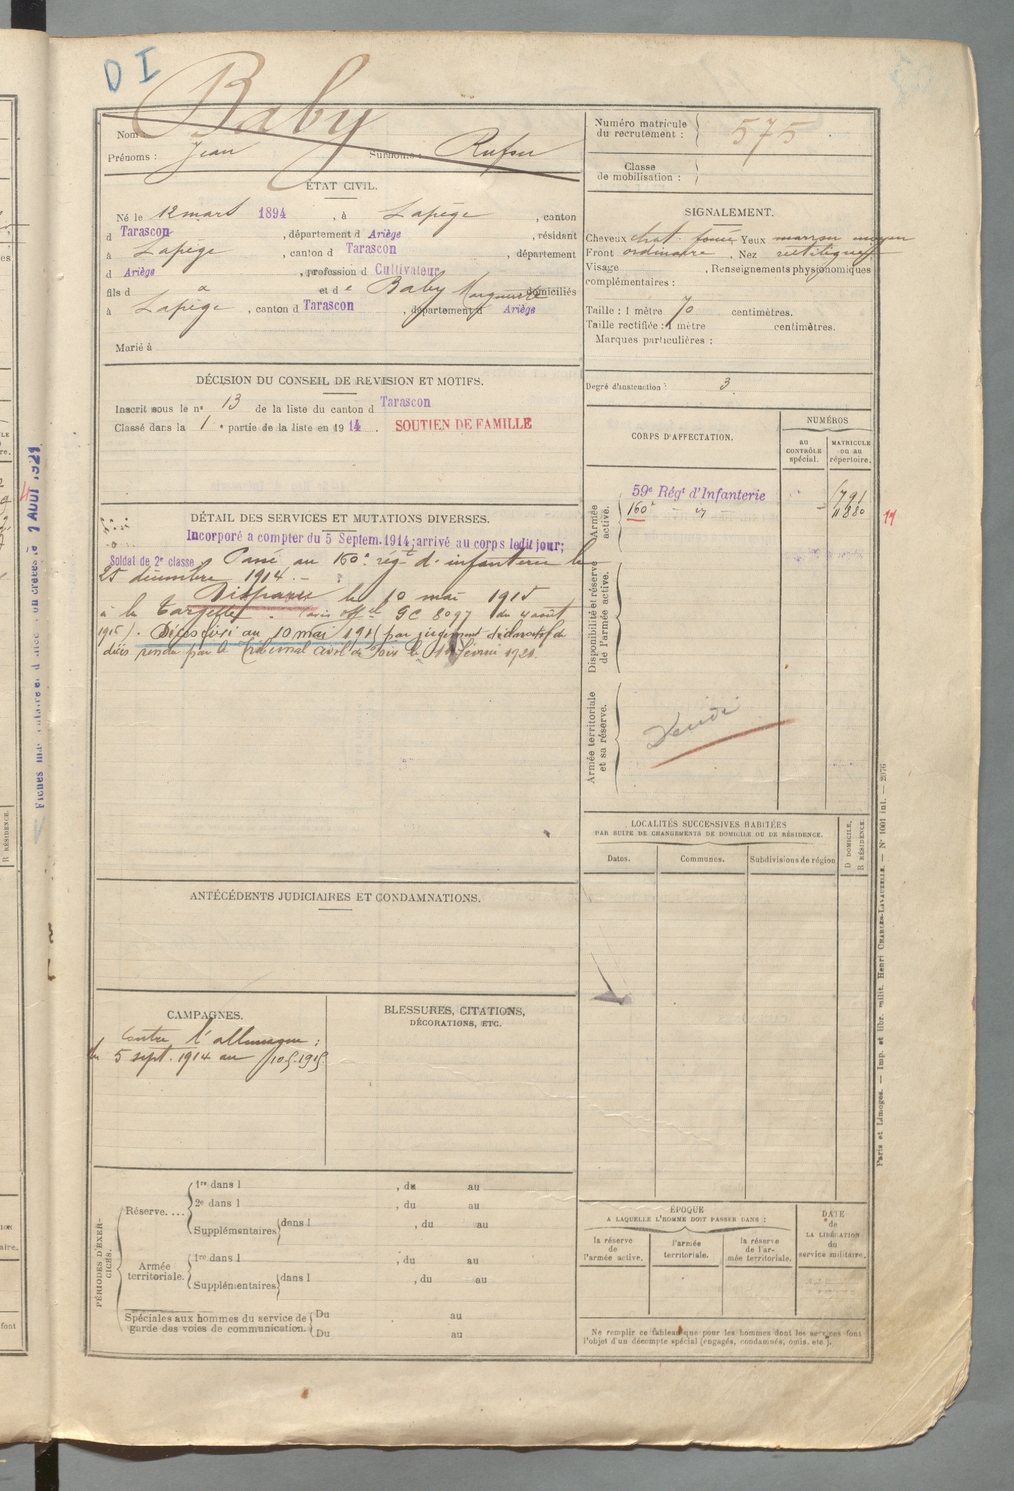 D I
Baby
Nom
Prénoms : Jean Surnoms :
Numéro matricule
du recrutement : 575
Classe
de mobilisation :
ÉTAT CIVIL.
Né le 12 mars 1894, à Lapège, canton
d Tarascon, département d Ariège, résidant
à Lapège, canton d Tarascon, département
d Ariège, profession d Cultivateur
fils d et de Baby Marguerite domiciliés
à Lapège, canton d Tarascon, département d Ariège
Marié à
SIGNALEMENT.
Cheveux chat. foncé Yeux marron moyen
Front ordinaire, Nez rectiligne
Visage , Renseignements physionomiques
complémentaires :
Taille : 1 mètre 70 centimètres.
Taille rectifiée : 1 mètre centimètres.
Marques particulières :
DÉCISION DU CONSEIL DE REVISION ET MOTIFS.
Inscrit sous le n° 13 de la liste du canton d Tarascon
Classé dans la 1e partie de la liste en 1914. SOUTIEN DE FAMILLE
Degré d'instruction : 3
CORPS D'AFFECTATION.
NUMÉROS
au
CONTRÔLE
spécial.
MATRICULE
ou au
répertoire.
Armée
active.
59e Régt d'Infanterie
160e
Disponibilité et réserve
de l'armée active.
Armée territoriale
et sa réserve.
DÉTAIL DES SERVICES ET MUTATIONS DIVERSES.
Incorporé a compter du 5 Septem. 1914; arrivé au corps ledit jour;
Soldat de 2e classe Passé au 160e régt d'infanterie le
25 décembre 1914.
Disparu le 10 mai 1915
à la Targette. (avis offel GC 8097 du 4 août
1915). Décès fixé au 10 mai 1915 par jugement déclaratif de
décès rendu par le tribunal civil de Foix le février 1921.
LOCALITÉS SUCCESSIVES HABITÉES
PAR SUITE DE CHANGEMENTS DE DOMICILE OU DE RÉSIDENCE.
Dates.
Communes.
Subdivisions de région
D DOMICILE,
R RÉSIDENCE.
ANTÉCÉDENTS JUDICIAIRES ET CONDAMNATIONS.
CAMPAGNES.
Contre l'allemagne :
du 5 sept. 1914 au 10.5.1915
BLESSURES, CITATIONS,
DÉCORATIONS, ETC.
PÉRIODES D'EXERCICES.
Réserve....
1re dans l , du au
2e dans l , du au
Supplémentaires dans l , du au
Armée
territoriale.
1re dans l , du au
Supplémentaires dans l , du au
Spéciales aux hommes du service de
garde des voies de communication.
Du au
Du au
ÉPOQUE
A LAQUELLE L'HOMME DOIT PASSER DANS :
la réserve
de
l'armée active.
l'armée
territoriale.
la réserve
de l'armée territoriale.
DATE
de
LA LIBÉRATION
du
service militaire.
Ne remplir ce tableau que pour les hommes dont les services font
l'objet d'un décompte spécial (engagés, condamnés, omis, etc.).
Paris et Limoges. — Imp. et libr. milit. Henri CHARLES-LAVAUZELLE. — N° 1001 int. — 2076